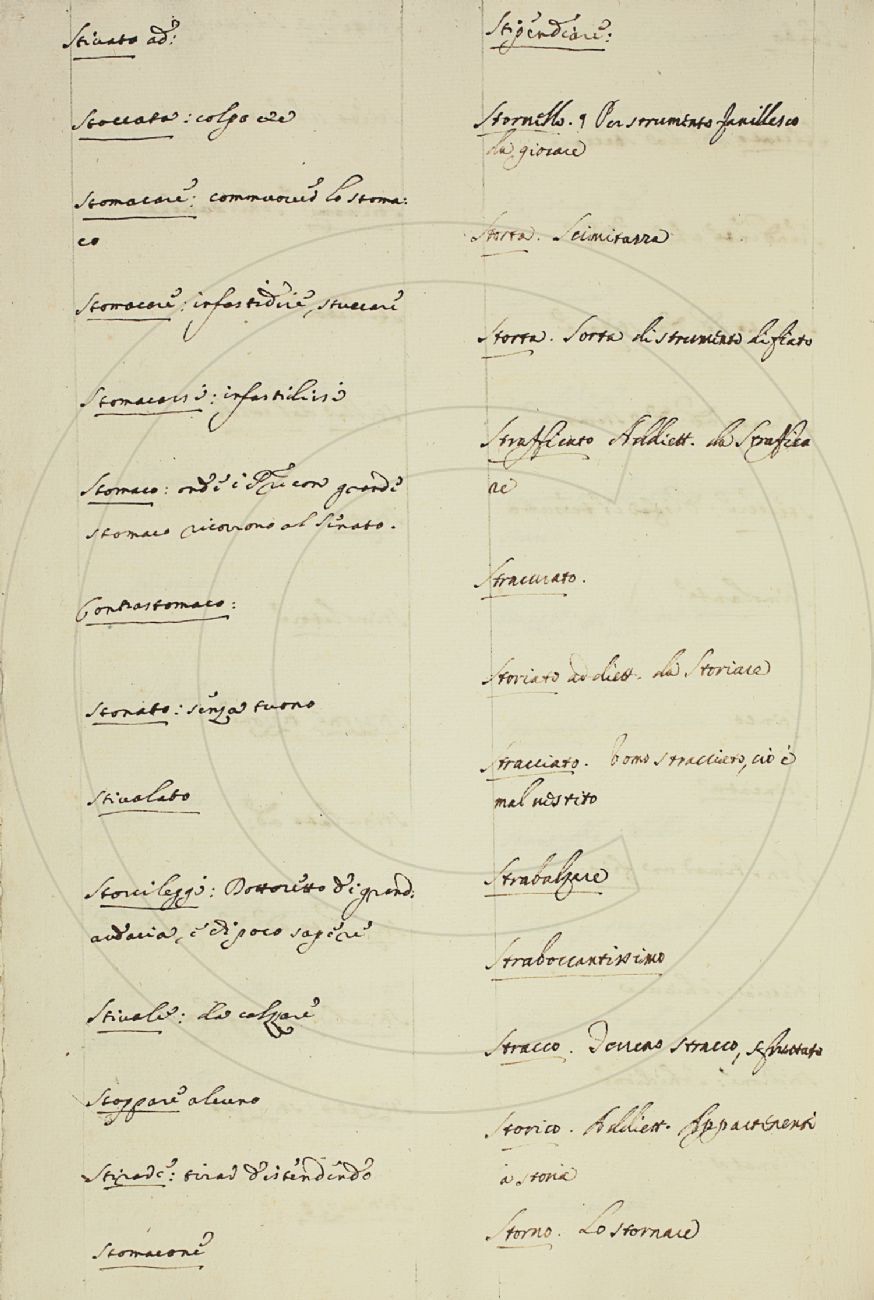 Stivato ad:
Stoccata: colpo
Stomacare: commuovere lo stoma:
co
Stomacare: infastidire, stuccare
Stomacarsi: infastidirsi
Stomaco: onde i con grande
stomaco ricorrono al Senato.
Contrastomaco:
Stonato: senza tuono
Stivalato
Storcileggi: Dottoretto di grand:
audacia, e di poco sapere
Stivale: da calzare
Stoppare alcuno
Stirare: tirar distendendo
Stomacone
Stipendiare:
Stornello. Per strumento fanillesco
da giocare
Storta. Scimitarra
Storta. Sorta di strumento di fiato
Strafficato Addiett. da Straffica
re
Stracciato.
Storiato addiett. da Storiare
Stracciato. Uomo stracciato, cio è
mal vestito
Strabalzare
Straboccantissimo
Stracco. Terreno stracco, sfruttato
Storico. Addiett. Appartenente
a storia
Storno. Lo stornare